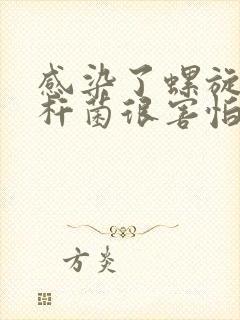 感染了螺旋
杆菌很害怕
方炎